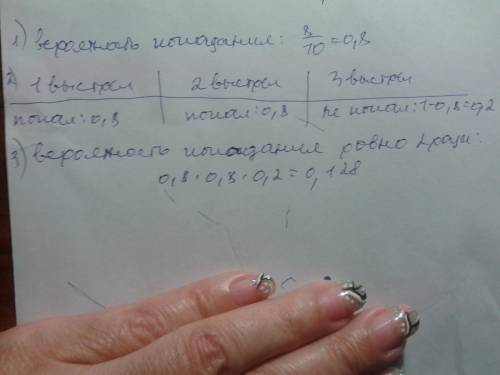 1) вероятность попадания: 8/10 = 0,8
2) 1 выстрел | 2 выстрел | 3 выстрел
попал: 0,8 | попал: 0,8 | не попал: 1-0,8=0,2
3) вероятность попадания ровно 2 раза:
0,8 · 0,8 · 0,2 = 0,128